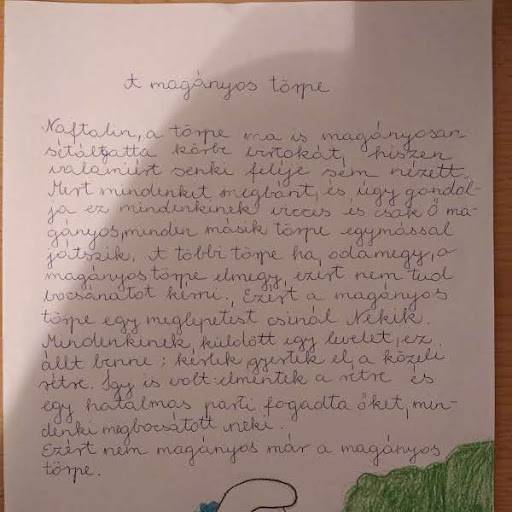 A magányos törpe
Naftalin, a törpe ma is magányosan
sétálgatta körbe birtokát, hiszen
valamiért senki feléje sem nézett.
Mert mindenkit megbánt, és úgy gondol-
ja ez mindenkinek vicces és csak Ő ma-
gányos, minden másik törpe egymással
játszik. A többi törpe ha odamegy, a
magányos törpe elmegy, ezért nem tud
bocsánatot kérni. Ezért a magányos
törpe egy meglepetést csinál Nekik.
Mindenkinek küldött egy levelet, ez
állt benne: kérlek gyertek el a közeli
rétre. Így is volt elmentek a rétre és
egy hatalmas parti fogadta őket, min-
denki megbocsátott neki.
Ezért nem magányos már a magányos
törpe.